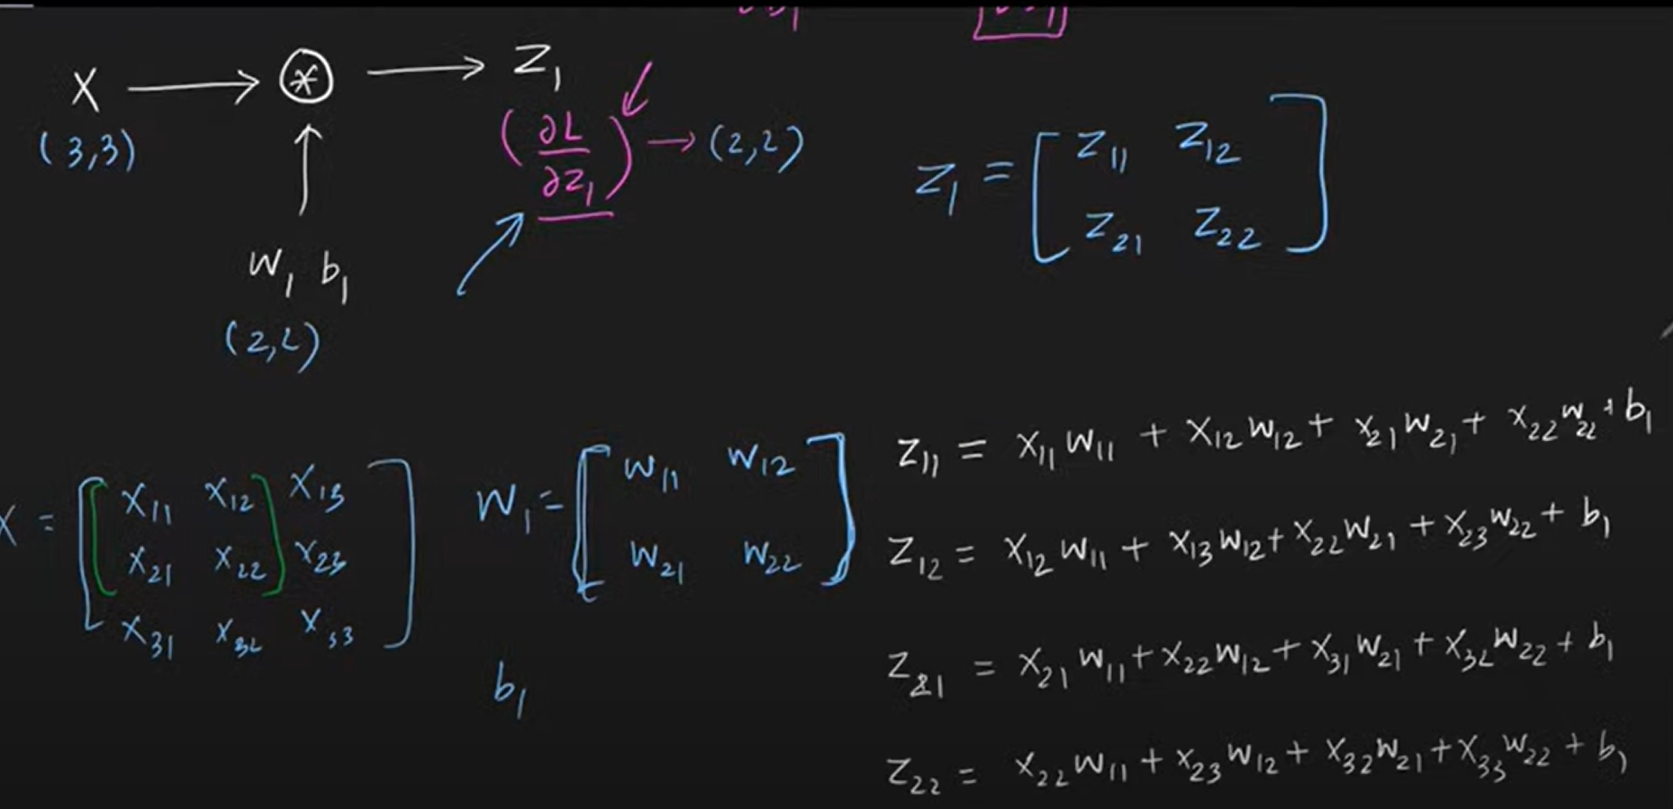 X → ⊛ → Z₁
(3,3)
(∂L/∂Z₁) → (2,2)
Z₁ = [ Z₁₁ Z₁₂
Z₂₁ Z₂₂ ]
W₁ b₁
(2,2)
X = [ X₁₁ X₁₂ X₁₃
X₂₁ X₂₂ X₂₃
X₃₁ X₃₂ X₃₃ ]
W₁ = [ W₁₁ W₁₂
W₂₁ W₂₂ ]
b₁
Z₁₁ = X₁₁W₁₁ + X₁₂W₁₂ + X₂₁W₂₁ + X₂₂W₂₂ + b₁
Z₁₂ = X₁₂W₁₁ + X₁₃W₁₂ + X₂₂W₂₁ + X₂₃W₂₂ + b₁
Z₂₁ = X₂₁W₁₁ + X₂₂W₁₂ + X₃₁W₂₁ + X₃₂W₂₂ + b₁
Z₂₂ = X₂₂W₁₁ + X₂₃W₁₂ + X₃₂W₂₁ + X₃₃W₂₂ + b₁